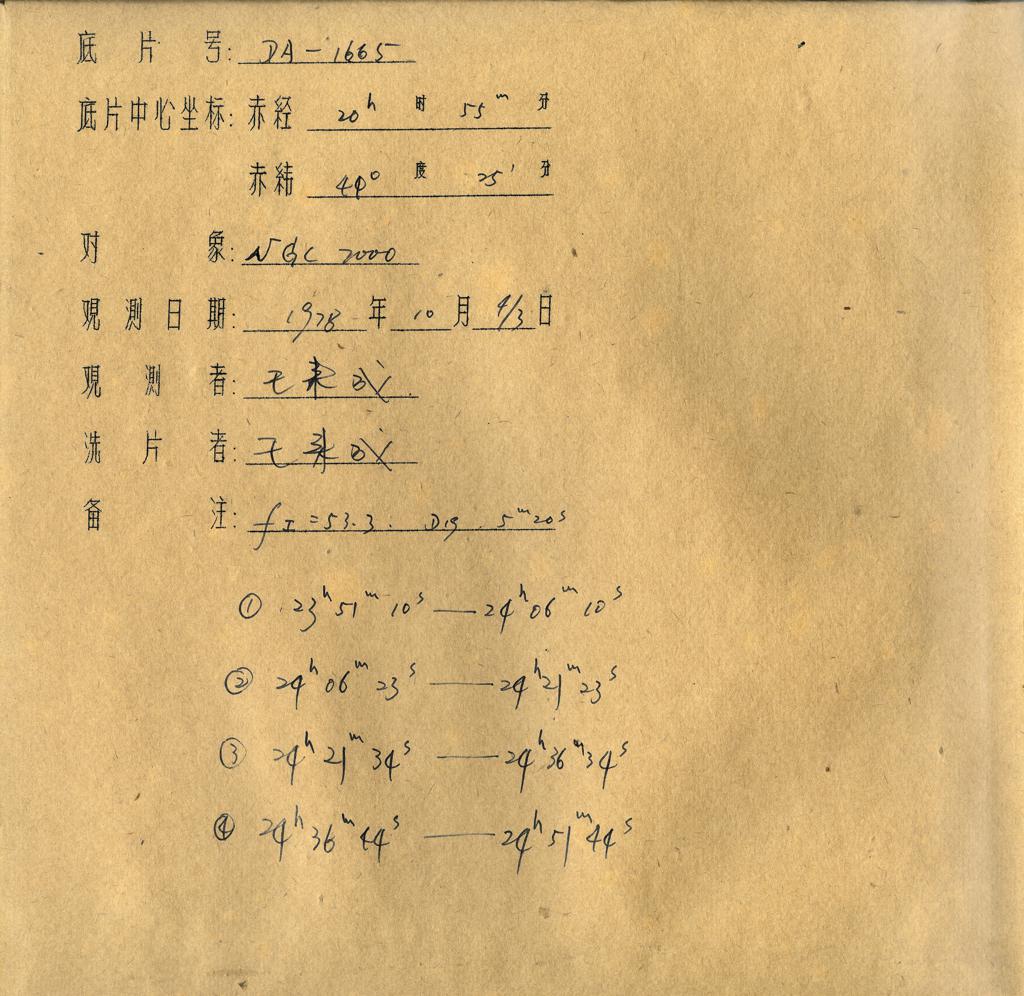 底片号: DA-1665
底片中心坐标: 赤经 20h 时 55m 分
赤纬 44° 度 25′ 分
对象: NGC 7000
观测日期: 1978年10月4/3日
观测者:
洗片者:
备注: fI=53.3. D19. 5m20s
① 23h51m10s — 24h06m10s
② 24h06m23s — 24h21m23s
③ 24h21m34s — 24h36m34s
④ 24h36m44s — 24h51m44s